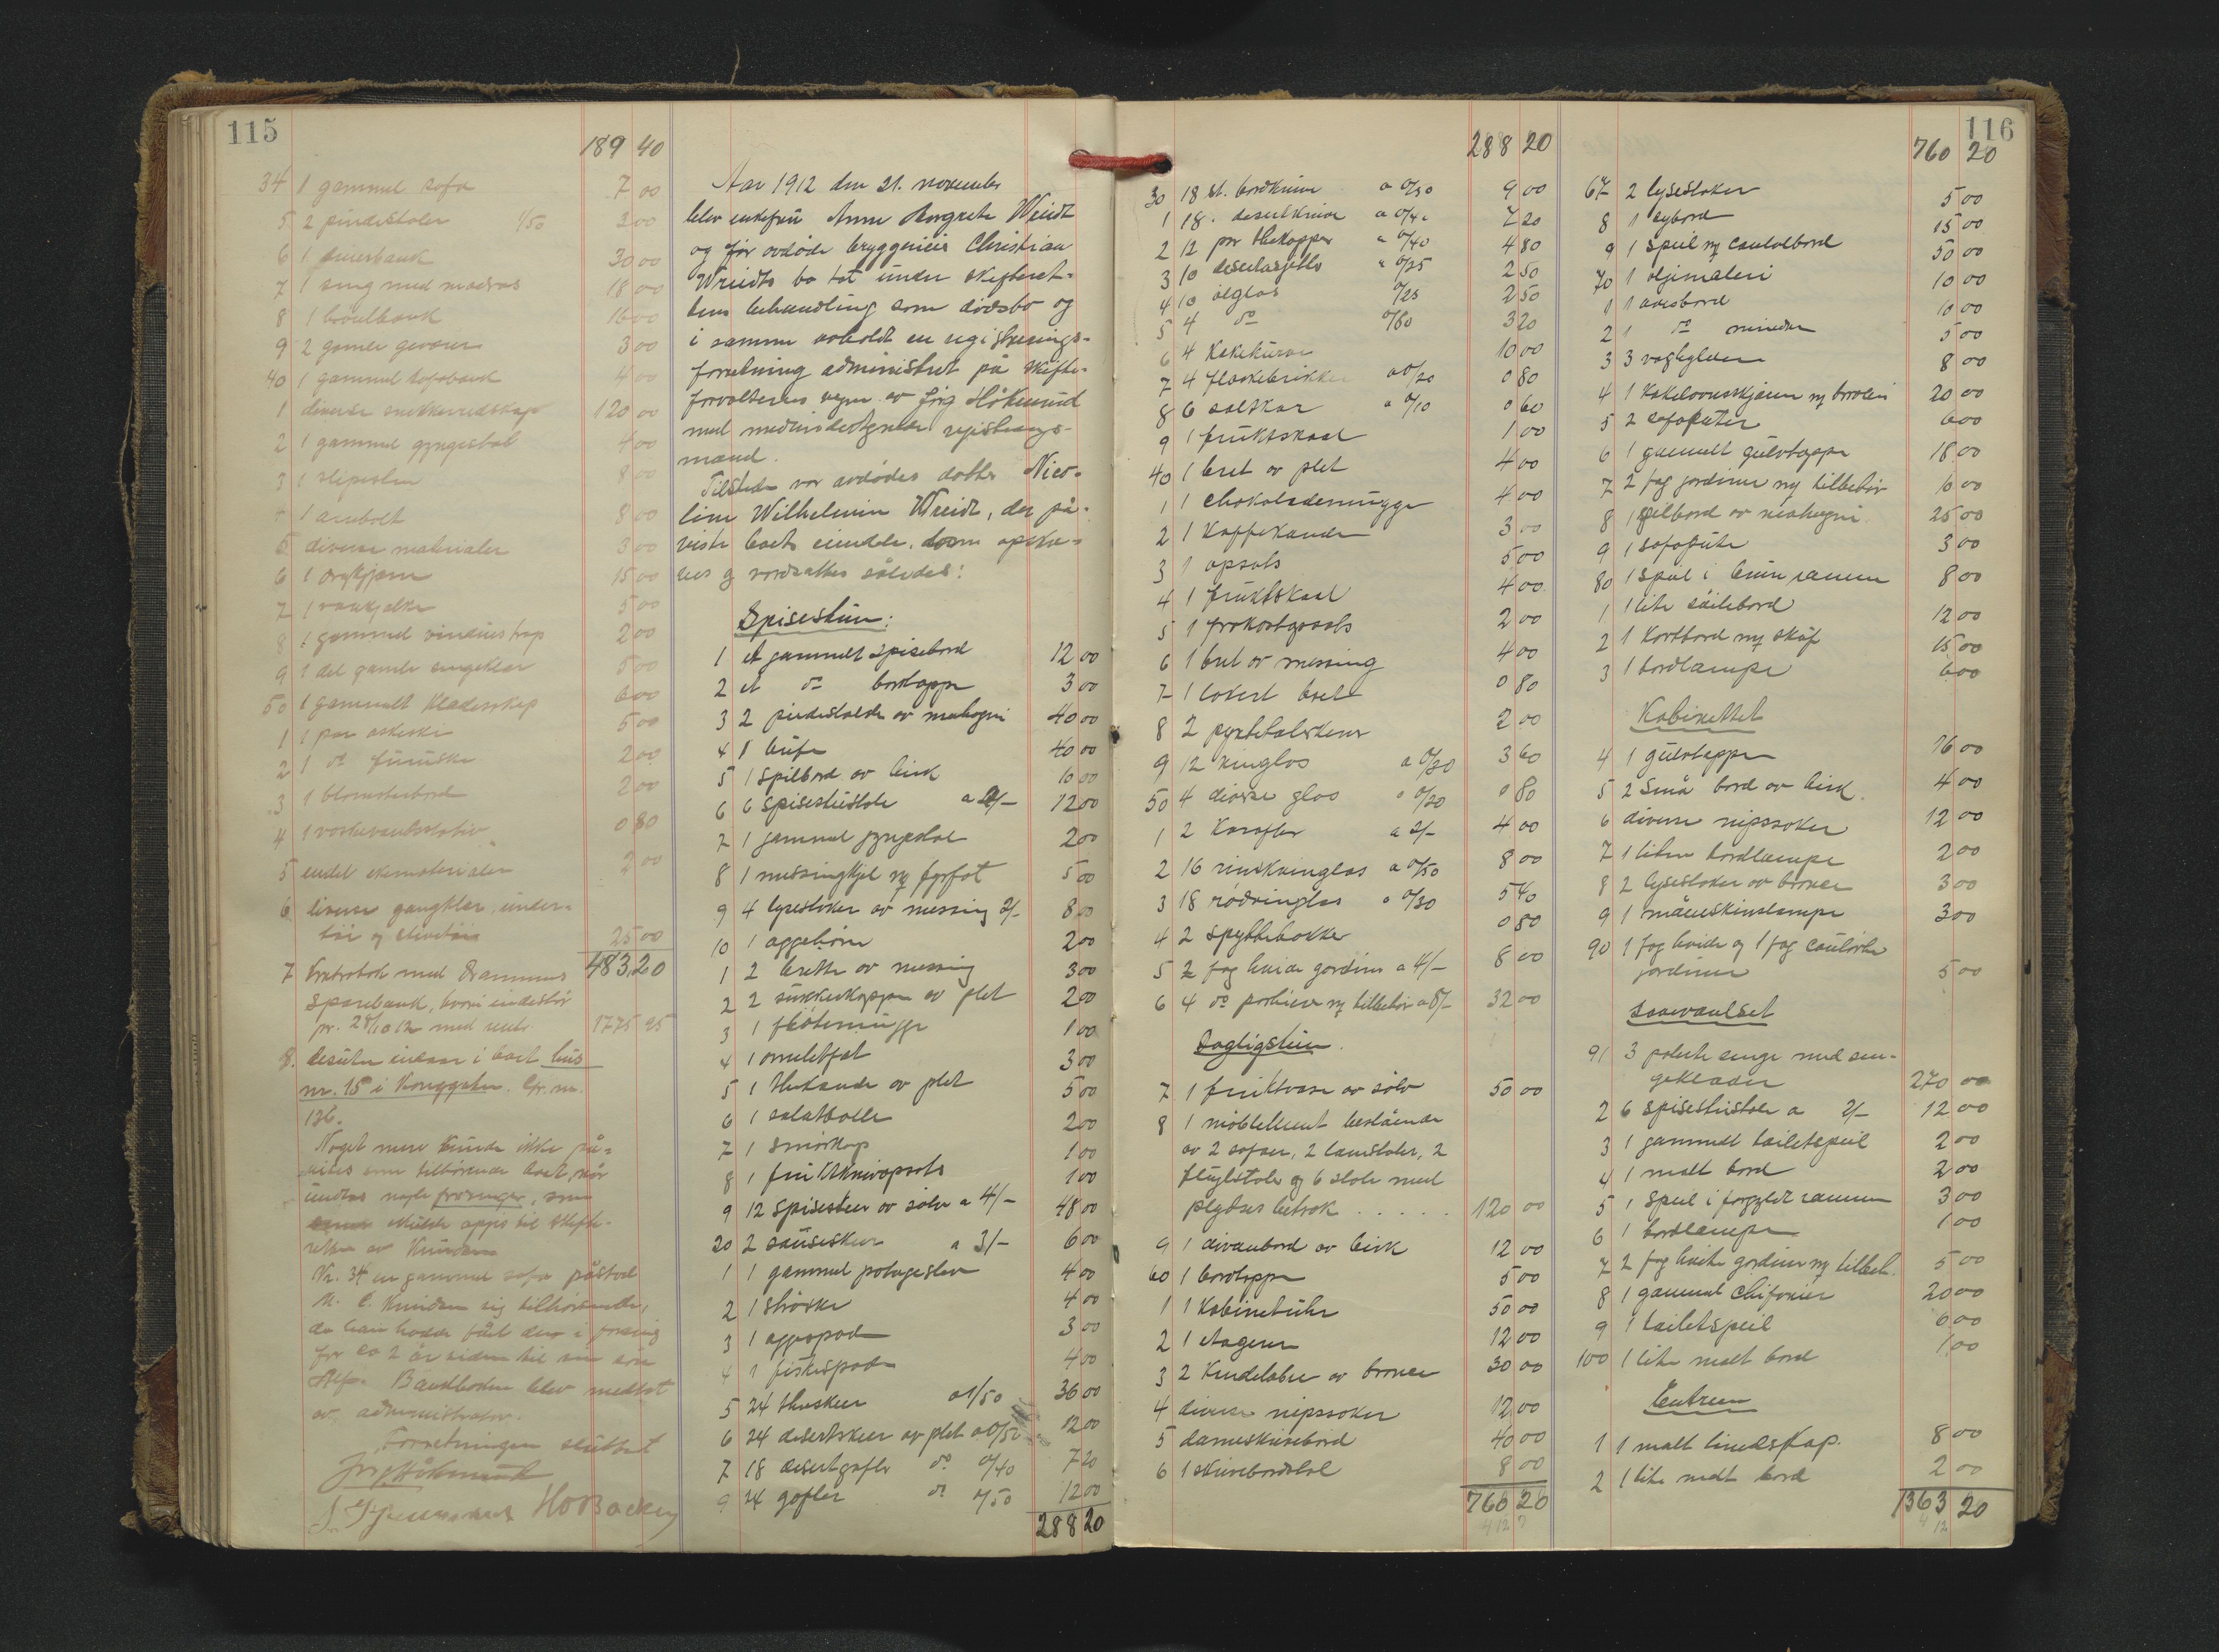 115
189 40
34 1 gammel sofa 7 00
5 2 pindestoler 1/50 3 00
6 1 høvelbank 30 00
7 1 seng med madras 18 00
8 1 høvelbank 16 00
9 2 gamle geværer 3 00
40 1 gammel sofabænk 4 00
1 diverse snekkerredskap 120 00
2 1 gammel gyngestol 4 00
3 1 slipesten 8 00
4 1 ambolt 8 00
5 diverse materialer 3 00
6 1 15 00
7 1 5 00
8 1 gammel vindustrap 2 00
9 1 del gamle sengeklær 5 00
50 1 gammelt klædesskap 6 00
1 1 par askeski 5 00
2 1 do furuski 2 00
3 1 blomsterbord 2 00
4 1 0 80
5 endel materialer 2 00
6 diverse gangklær, under-
tøi og skotøi 25 00
483,20
7 Kontrabok med Drammens
Sparebank, hvori indestår
pr. 28/10 12 med rente 1775 95
8. desuten eiesses i boet hus
nr. 15 i Kongsgaten. br. nr.
136.
Noget mere kunde ikke på-
vises som tilhørende boet, når
undtas nogle fordringer, som
skulde opgis til skifte-
retten av Knudsen
Nr. 34 en gammel sofa påstod
M. C. Knudsen sig tilhørende,
da han hadde fåt den i foræring
for ca 2 år siden til sin søn
Alf. Bankboken blev medtat
av administrator.
Forretningen sluttet
Jørg Hökerund
H O Backer
Aar 1912 den 21. november
blev enkefru Anne Margrete Wriedt
og før avdøde bryggerieier Christian
Wriedts bo tat under skifteret-
tens behandling som dødsbo og
i samme avholdt en registrerings-
forretning administret på skifte-
forvalterens vegne av Jørg Hökerund
med medundertegnede registrerings-
mænd.
Tilstede var avdødes datter Nico-
line Wilhelmine Wriedt, der på-
viste boets eiendele, som opskre-
ves og værdsattes således:
Spisestuen:
1 et gammelt spisebord 12 00
2 et do bordtæppe 3 00
3 2 pindestoler av mahogni 40 00
4 1 bufe 40 00
5 1 spilbord av birk 10 00
6 6 spisestustole a 2/- 12 00
7 1 gammel gyngestol 2 00
8 1 messingkjel og fyrfat 5 00
9 4 lysestaker av messing 2/- 8 00
10 1 æggehøne 2 00
1 2 bretter av messing 3 00
2 2 sukkerkopper av plet 2 00
3 1 fløtemugge 1 00
4 1 omeletfat 3 00
5 1 thekande av plet 5 00
6 1 salatbolle 2 00
7 1 smørkop 1 00
8 1 fruktknivopsats 1 00
9 12 spiseskeer av sølv a 4/- 48 00
20 2 sauseskeer a 3/- 6 00
1 1 gammel potageslev 4 00
2 1 strøske 4 00
3 1 æggespade 3 00
4 1 fiskespade 4 00
5 24 theskeer a 1/50 36 00
6 24 desertskeer av plet a 0/50 12 00
7 18 desertgafler do 0/40 7 20
9 24 gafler do 0/50 12 00
288 20
288 20
30 18 st. bordkniver a 0/50 9 00
1 18. desertkniver a 0/40 7 20
2 12 par thekopper a 0/40 4 80
3 10 desertasjetter a 0/25 2 50
4 10 ølglas 0/25 2 50
5 4 do 0/80 3 20
6 4 kakekurver 10 00
7 4 flaskebrikker a 0/20 0 80
8 6 saltkar a 0/10 0 60
9 1 fruktskaal 1 00
40 1 bret av plet 4 00
1 1 chokolademugge 4 00
2 1 kaffekande 3 00
3 1 opsats 5 00
4 1 fruktskaal 4 00
5 1 frokostopsats 2 00
6 1 bret av messing 4 00
7 1 lakert bret 0 80
8 2 pyntetalerkener 2 00
9 12 vinglas a 0/30 3 60
50 4 diverse glas a 0/20 0 80
1 2 karafler a 2/- 4 00
2 16 rinskvinglas a 0/50 8 00
3 18 rødvinglas a 0/30 5 40
4 2 spyttebakker 0 80
5 2 fag hvide gardiner a 4/- 8 00
6 4 do portierer og tilbehør a 8/- 32 00
Dagligstuen.
7 1 fruktvase av sølv 50 00
8 1 møblement bestående
av 2 sofaer, 2 lænstoler, 2
fløistole og 6 stole med
plydses betræk . . . . . 120 00
9 1 divanbord av birk 12 00
60 1 bordtæppe 5 00
1 1 kabinetuhr 50 00
2 1 etagere 12 00
3 2 kandelabre av bronce 30 00
4 diverse nipssaker 12 00
5 dameskrivebord 40 00
6 1 skrivebordstol 8 00
760 20
116
760 20
67 2 lysestaker 5 00
8 1 sybord 15 00
9 1 speil og consolbord 50 00
70 1 oljemaleri 10 00
1 1 avisbord 10 00
2 1 do mindre 5 00
3 3 væghylder 8 00
4 1 kakelovnsskjærm og broderi 20 00
5 2 sofaputer 6 00
6 1 gammelt gulvtæppe 18 00
7 2 fag gardiner og tilbehør 10 00
8 1 spilbord av mahogni 25 00
9 1 sofapute 3 00
80 1 speil i brun ramme 8 00
1 1 lite søilebord 12 00
2 1 kortbord og skuf 15 00
3 1 bordlampe 6 00
Kabinettet
4 1 gulvtæppe 16 00
5 2 små bord av birk 4 00
6 diverse nipssaker 12 00
7 1 liten bordlampe 2 00
8 2 lysestaker av bronce 3 00
9 1 måneskinslampe 3 00
90 1 fag hvide og 1 fag coulørte
gardiner 5 00
Soveværelset
91 3 polerte senge med sen-
geklæder 270 00
2 6 spisestustoler a 2/- 12 00
3 1 gammelt toiletspeil 2 00
4 1 malt bord 2 00
5 1 speil i forgyldt ramme 3 00
6 1 bordlampe 1 00
7 2 fag hvite gardiner og tilbeh. 5 00
8 1 gammel chifonier 20 00
9 1 toiletspeil 6 00
100 1 lite malt bord 1 00
Entreen
1 1 malt linedskap. 8 00
2 1 lite malt bord 2 00
1363 20